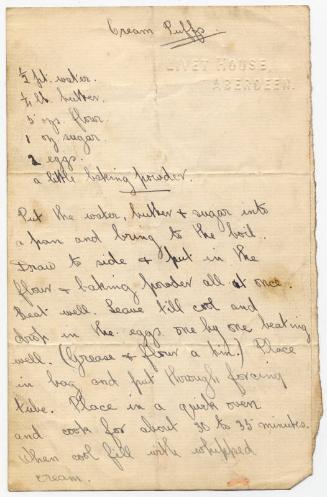 Cream Puffs
LIVET HOUSE,
ABERDEEN.
½ pt. water.
¼ lb. butter.
5 ozs. flour.
1 oz sugar.
eggs.
a little baking powder.
Put the water, butter & sugar into
a pan and bring to the boil.
Draw to side & put in the
flour & baking powder all at once.
Beat well. Leave till cool and
drop in the eggs one by one beating
well. (Grease & flour a tin.) Place
in bag and put through forcing
tube. Place in a quick oven
and cook for about 30 to 35 minutes.
When cool fill with whipped
cream.